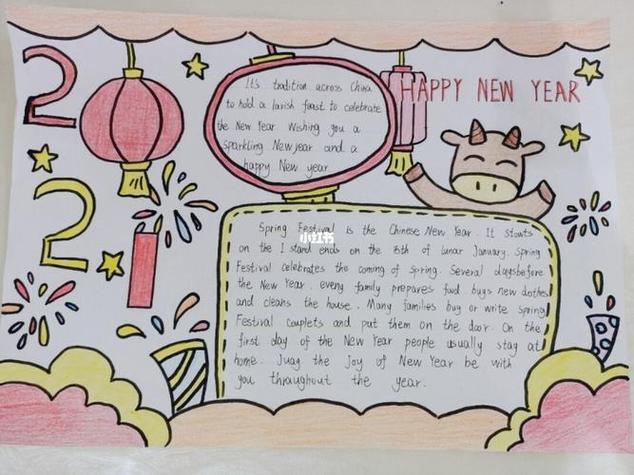 2021
HAPPY NEW YEAR
It's tradition across China
to hold a lavish feast to celebrate
the New Year Wishing you a
sparkling New year and a
happy New year
Spring Festival is the Chinese New Year. It starts
on the 1st and ends on the 15th of lunar January. Spring
Festival celebrates the coming of spring. Several daysbefore
the New Year. eveny family prepares food buys new clothes
and cleans the house. Many families buy or write Spring
Festival couplets and put them on the door. On the
first day of the New Year people usually stay at
home. Juag the Joy of New Year be with
you thraughout the year.
小红书